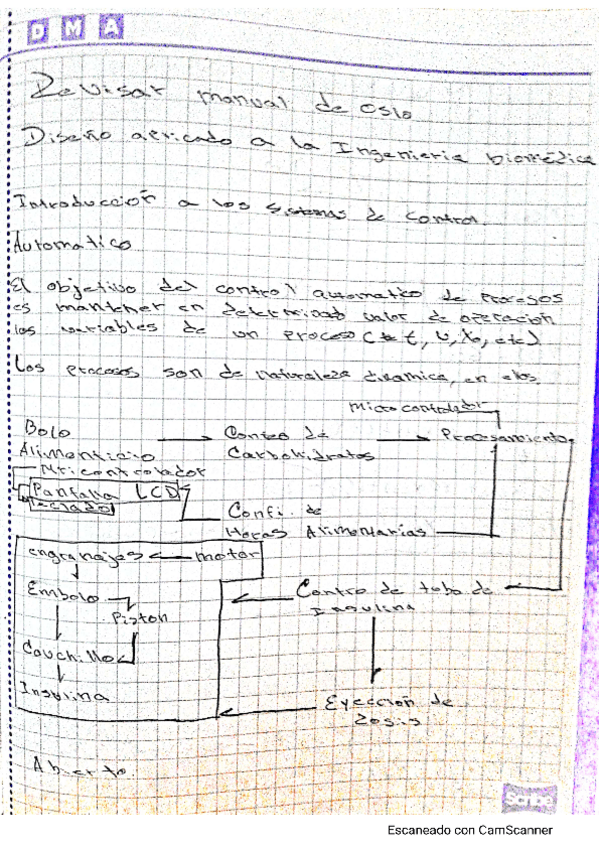 D M A
Revisar manual de oslo
Diseño apricado a la Ingenieria biomédica
Introducción a los sistemas de control.
Automatico
El objetivo del control automatico de procesos
es mantener en determinado valor de operación
las variables de un proceso ( t, v, x, etc)
Los procesos son de naturaleza dinamica, en ellos
microcontrolador
Bolo Conteo de Procesamiento
Alimenticio Carbohidratos
Mricontrolador
Pantalla LCD
Teclado Confi. de
Horas Alimentarias
engranajes motor
Embolo Contro de tubo de
Piston Insulina
Cauchillo
Insulina Eyección de
Dosis
Abierto.
Scribe
Escaneado con CamScanner